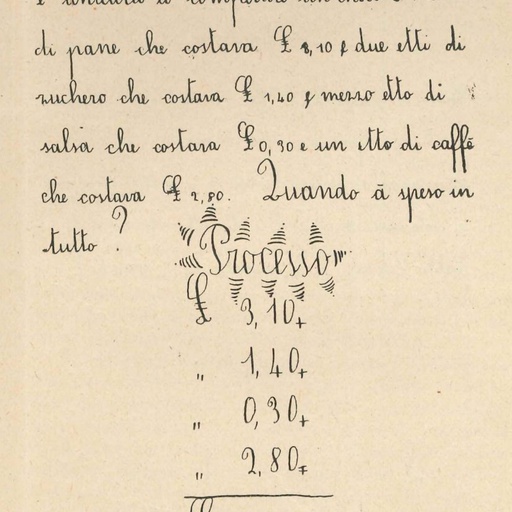 di pane che costava £ 3,10 e due etti di
zuchero che costava £ 1,40 e mezzo etto di
salsa che costava £ 0,30 e un etto di caffè
che costava £ 2,80. Quando à speso in
tutto?
Processo
£ 3,10+
" 1,40+
" 0,30+
" 2,80=